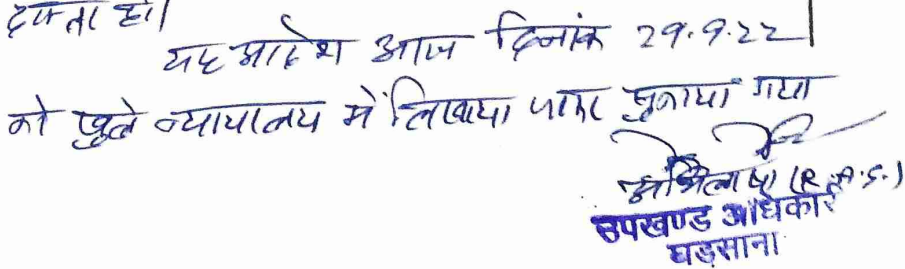 दफ्तर हो।
यह आदेश आज दिनांक 29.9.22
को खुले न्यायालय में लिखाया जाकर सुनाया गया
अभिलाषा (R.A.S.)
उपखण्ड अधिकारी
घड़साना